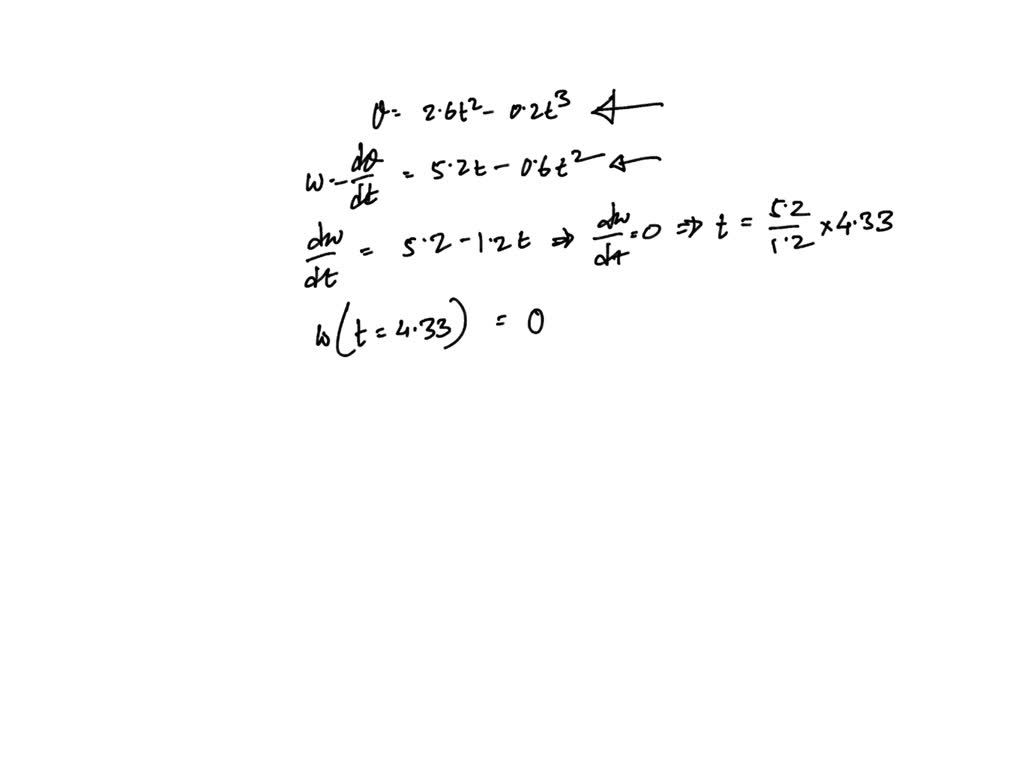 θ = 2.6t² - 0.2t³ ←
w = dθ/dt = 5.2t - 0.6t² ←
dw/dt = 5.2 - 1.2t ⇒ dw/dt = 0 ⇒ t = 5.2/1.2 × 4.33
w(t = 4.33) = 0